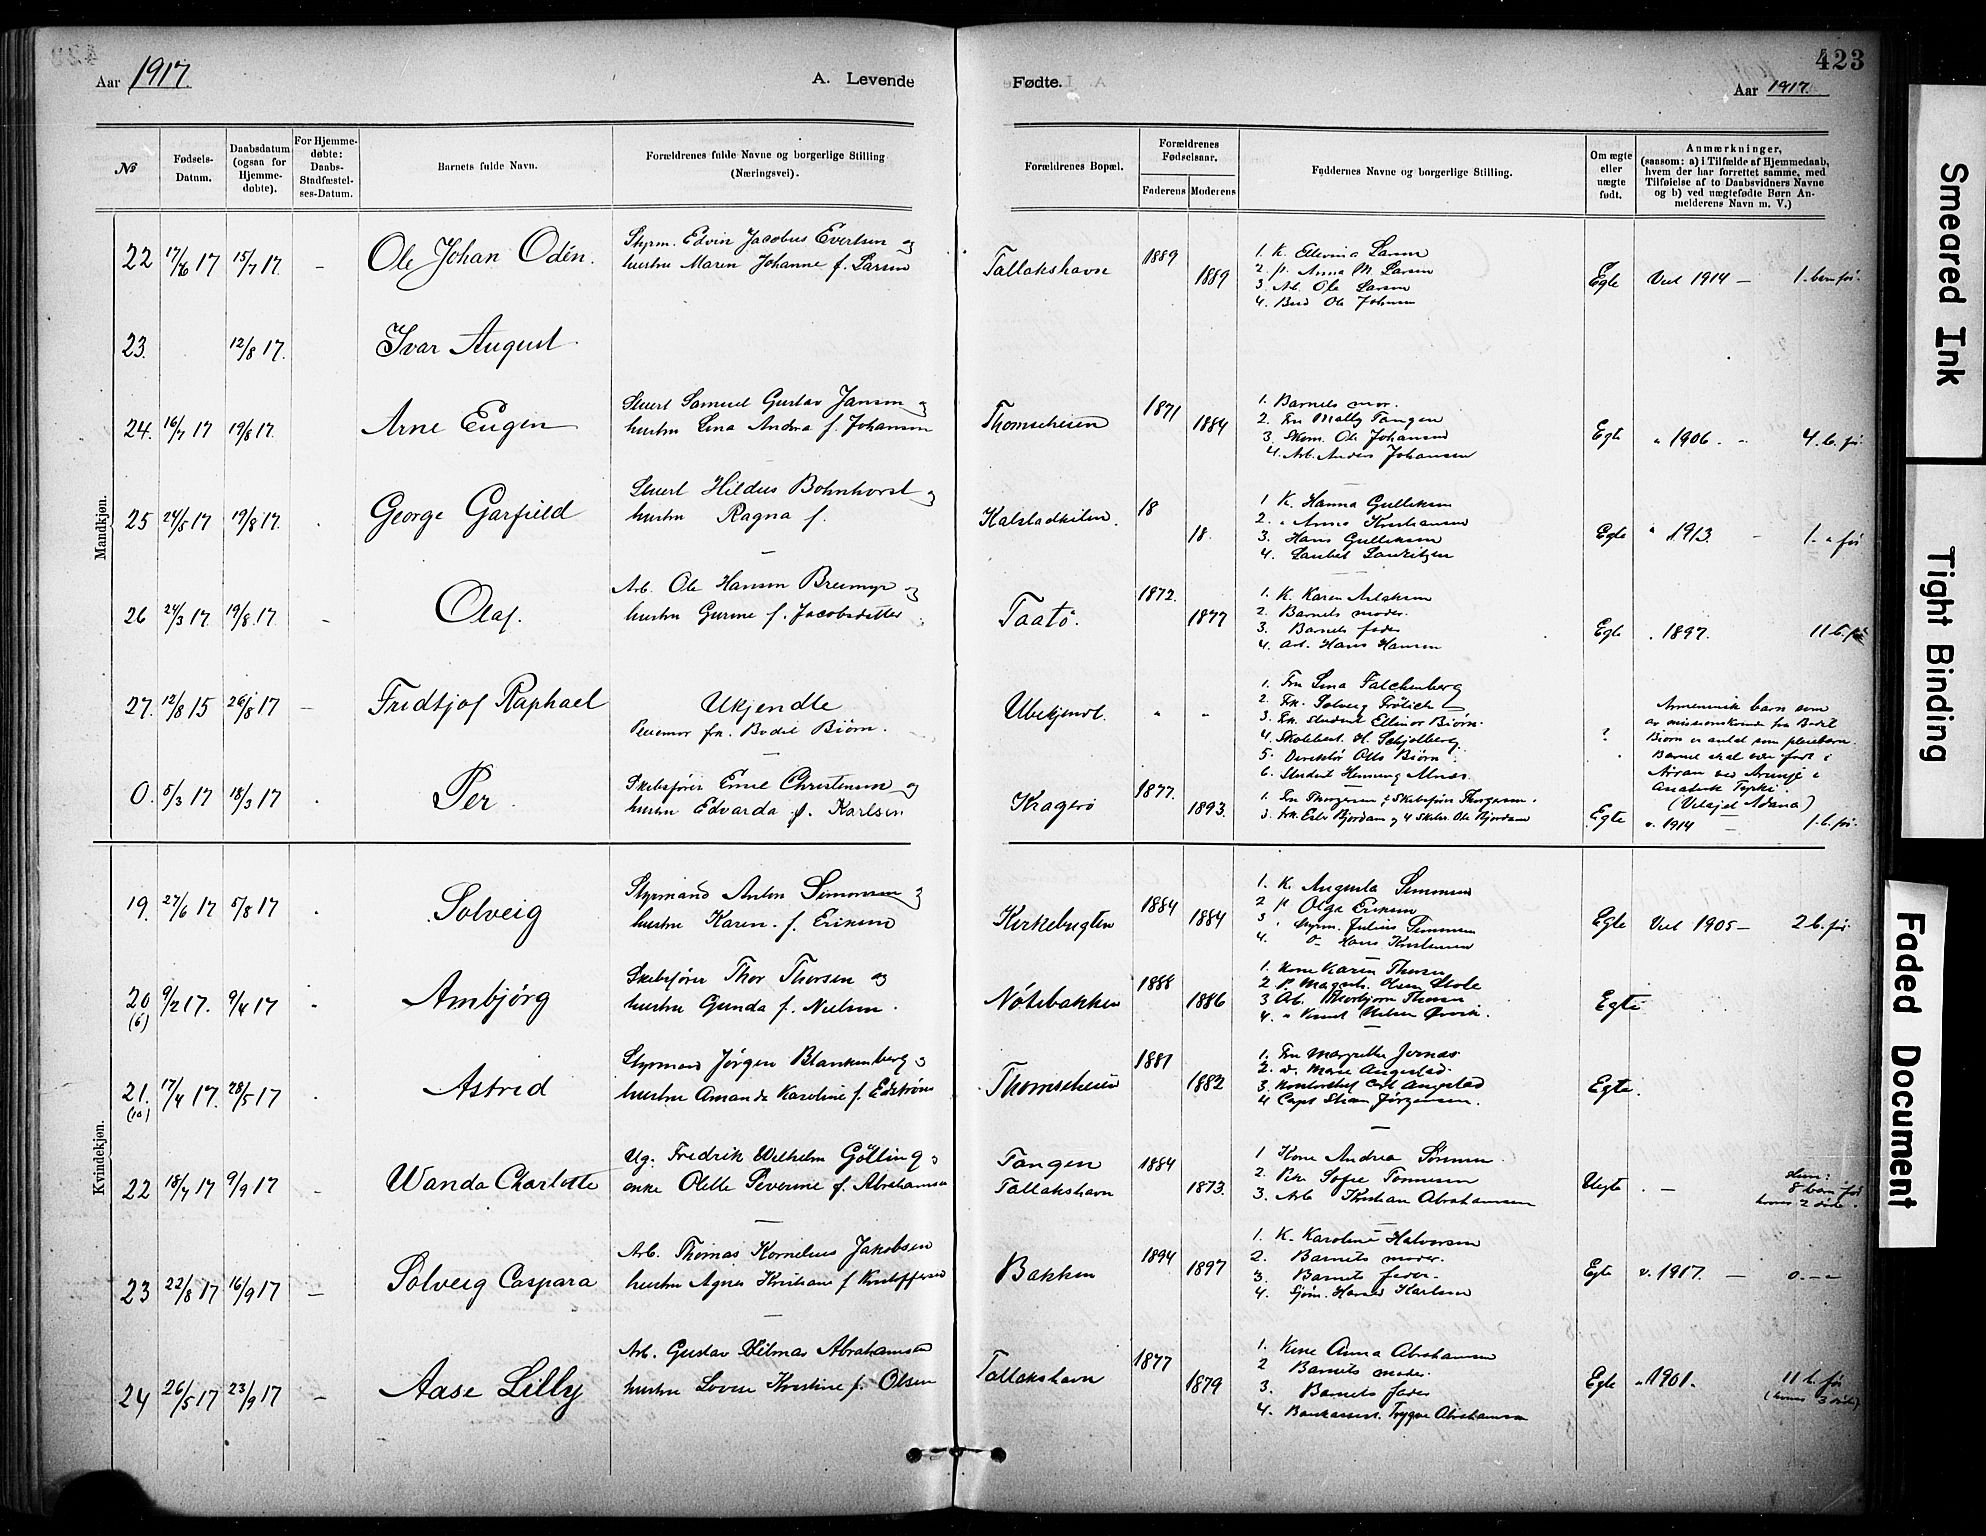 423
Aar 1917.
A. Levende
Fødte.
Aar 1917.
No
Fødsels-Datum.
Daabsdatum (ogsaa for Hjemmedøbte).
For Hjemmedøbte: Daabs-Stadfæstelses-Datum.
Barnets fulde Navn.
Forældrenes fulde Navne og borgerlige Stilling (Næringsvei).
Forældrenes Bopæl.
Forældrenes Fødselsaar.
Faderens
Moderens
Faddernes Navne og borgerlige Stilling.
Om ægte eller uægte født.
Anmærkninger, (saasom: a) i Tilfælde af Hjemmedaab, hvem der har forrettet samme, med Tilføielse af to Daabsvidners Navne og b) ved uægtefødte Børn Anmelderens Navn m. V.)
Mandkjøn.
22 17/6 17 15/7 17. - Ole Johan Odén.
Styrm. Edvin Jacobus Evertsen og
hustru Maren Johanne f. Larsen
Tallakshavn 1889 1889
1. K. Ellevina Larsen
2. P. Anna M. Larsen
3. Arb. Ole Larsen
4. Ole Johnsen
Egte Viet 1914 - 1. barn før.
23. 12/8 17. Ivar August
24. 16/7 17 19/8 17. Arne Eugen
Stuert Samuel Gustav Jansen og
hustru Lina Andrea f. Johansen
Thomesheien 1871 1884
1. Barnets mor.
2. Fru Mally Tangen
3. Skom. Ole Johansen
4. Arb. Anders Johansen
Egte " 1906. - 4. b. før.
25 24/5 17 19/8 17. George Garfield
Stuert Hildus Bohnhorst og
hustru Ragna f.
Kalstadkilen. 18 18.
1. K. Hanna Gulliksen
2. " Anna Kristiansen
3. Hans Gulliksen
4. Lauritzen
Egte " 1913. - 1. " før
26 24/3 17. 19/8. 17 - Olaf.
Arb. Ole Hansen Breimyr og
hustru Gurine f. Jacobsdatter
Taatø. 1872. 1877
1. K. Karen Aslaksen
2. Barnets moder.
3. Barnets fader
4. Arb. Hans Hansen
Egte . 1897. 11 b. før
27. 12/8 15 26/8 17 - Fridtjof Raphael
Ukjendte
Pleiemor frk. Bodil Biørn.
Ubekjendt. " "
1. Fru Lina Falchenberg
2. Frk. Solveig Frølich
3. Frk. student Ellinor Biørn.
4. Skolebest. H. Schjelberg.
5. Direktør Otto Biørn
6. Student Henning Alnæs.
?
Armenisk barn som
av missionskvinde frk Bodil
Biørn er antat som pleiebarn.
Barnet skal være født i
Airan ved Arinje i
Anatolsk Tyrki.
(Vilajet Adana)
0. 5/3 17 18/3 17 Per.
Skibsfører Emil Christensen og
hustru Edvarda f. Karlsen
Kragerø 1877. 1893.
1. Fru Thorgersen 2 Skibsfører Thorgersen.
3. Frk. Bjordam og 4 Skibsr. Ole Bjordam
Egte v. 1914 - 1. b. før.
Kvindekjøn.
19. 27/6 17 5/8 17 Solveig
Styrmand Anton Simonsen og
hustru Karen. f. Eriksen
Kirkebugten 1884 1884
1. K. Augusta Simonsen
2 P Olga Eriksen
3 Styrm. Julius Simonsen
4. Hans Kristensen
Egte Viet 1905 - 2 b. før.
20 (6) 9/2 17. 9/4 17 Arnbjørg
Skibsfører Thor Thorsen og
hustru Gunda f. Nielsen.
Nøtebakken 1888 1886
1. Kone Karen Thorsen
2 P. Olsen Skole
3 Arb. Thorbjørn Thorsen
4. " Knut Nilsen Ørvik.
Egte
21. (10) 17/4 17. 28/5 17 Astrid
Styrmand Jørgen Blankenberg og
hustru Amanda Karoline f. Edstrøm
Thomesheien 1881 1882
1. Fru Margrethe Jernæs
2. Marie Angestad.
3. Kontorchef Carl Angestad
4 Capt. Jørgensen.
Egte.
22 18/7 17 9/9 17 Wanda Charlotte
Ug. Fredrik Wilhelm Gølling og
enke Olette Severine f. Abrahamsen
Tangen
Tallakshavn
1884 1873.
1 Kone Andrea
2. Pike Sofie Tønnesen
3. Arb Kristian Abrahamsen
Uegte . -
Hun: 8 barn før
hvoraf 2 døde.
23 22/8 17 16/9 17 - Solveig Caspara
Arb. Thomas Kornelius Jakobsen
hustru Agnes Kristiane f. Kristoffersen
Bakken 1894 1897
1. K. Karoline Halvorsen
2. Barnets moder.
3. Barnets fader.
4. Sjøm. Harald Karlsen
Egte v. 1917. - 0. - "
24 26/5 17 23/9 17 - Aase Lilly
Arb. Gustav Vilmas Abrahamsen
hustru Lovise Kristine f. Olsen
Tallakshavn 1877 1879
1. Kone Anna Abrahamsen
2 Barnets moder.
3. Barnets fader
4. Bankassist. Trygve Abrahamsen
Egte " 1901. 11 b. før
(hvoraf 3 døde)
Smeared Ink
Tight Binding
Faded Document